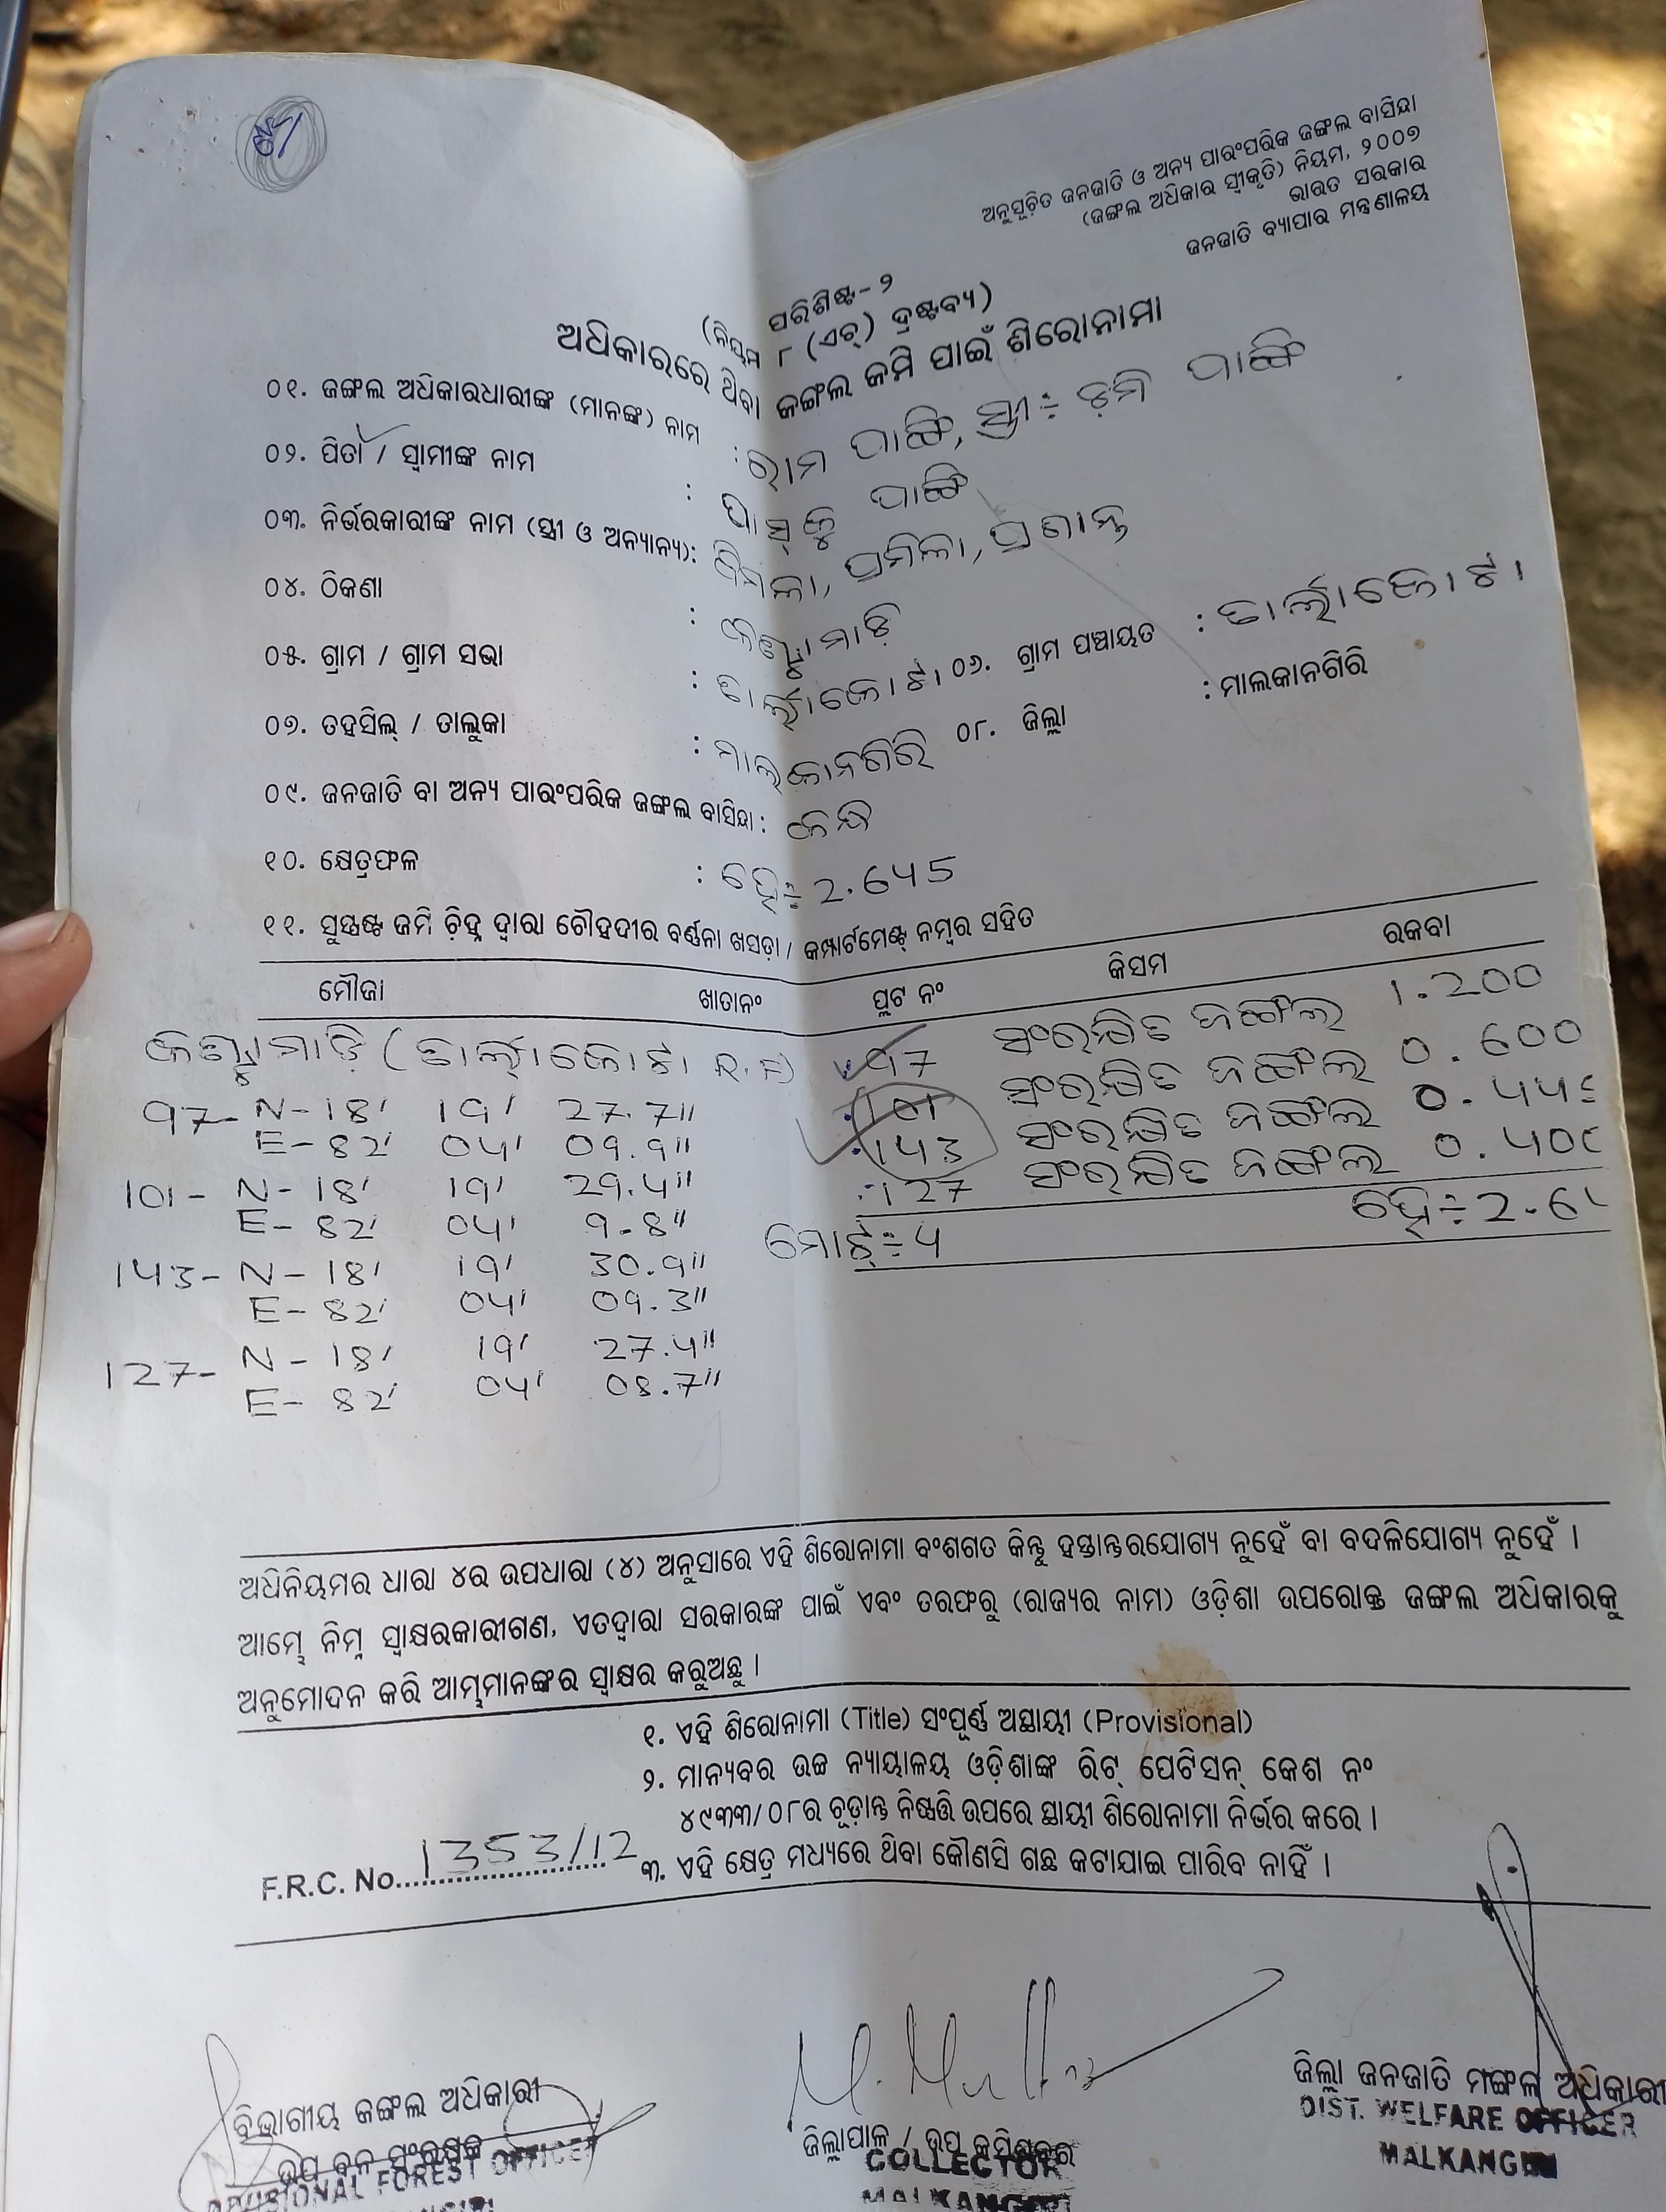 ଅନୁସୂଚିତ ଜନଜାତି ଓ ଅନ୍ୟ ପାରଂପରିକ ଜଙ୍ଗଲ ବାସିନ୍ଦା
(ଜଙ୍ଗଲ ଅଧିକାର ସ୍ୱୀକୃତି) ନିୟମ, ୨୦୦୭
ଭାରତ ସରକାର
ଜନଜାତି ବ୍ୟାପାର ମନ୍ତ୍ରଣାଳୟ
ପରିଶିଷ୍ଟ-୨
(ନିୟମ ୮ (ଏଚ୍) ଦ୍ରଷ୍ଟବ୍ୟ)
ଅଧିକାରରେ ଥିବା ଜଙ୍ଗଲ ଜମି ପାଇଁ ଶିରୋନାମା
୦୧. ଜଙ୍ଗଲ ଅଧିକାରଧାରୀଙ୍କ (ମାନଙ୍କ) ନାମ : ରାମ ପାଙ୍ଗି, ସ୍ତ୍ରୀ÷ ଡ଼ମି ପାଙ୍ଗି
୦୨. ପିତା / ସ୍ୱାମୀଙ୍କ ନାମ : ପାଙ୍ଗି
୦୩. ନିର୍ଭରକାରୀଙ୍କ ନାମ (ସ୍ତ୍ରୀ ଓ ଅନ୍ୟାନ୍ୟ): ବିମଳା, ପ୍ରମିଳା, ପ୍ରଶାନ୍ତ
୦୪. ଠିକଣା :
୦୫. ଗ୍ରାମ / ଗ୍ରାମ ସଭା : ତାର୍ଲାକୋଟା ୦୬. ଗ୍ରାମ ପଞ୍ଚାୟତ : ତାର୍ଲାକୋଟା
୦୭. ତହସିଲ୍ / ତାଲୁକା : ମାଲକାନଗିରି ୦୮. ଜିଲ୍ଲା : ମାଲକାନଗିରି
୦୯. ଜନଜାତି ବା ଅନ୍ୟ ପାରଂପରିକ ଜଙ୍ଗଲ ବାସିନ୍ଦା : କନ୍ଧ
୧୦. କ୍ଷେତ୍ରଫଳ : ହେ÷ 2.645
୧୧. ସୁସ୍ପଷ୍ଟ ଜମି ଚିହ୍ନ ଦ୍ୱାରା ଚୌହଦୀର ବର୍ଣ୍ଣନା ଖସଡ଼ା / କମ୍ପାର୍ଟମେଣ୍ଟ୍ ନମ୍ବର ସହିତ
ମୌଜା ଖାତାନଂ ପ୍ଲଟ ନଂ କିସମ ରକବା
(ତାର୍ଲାକୋଟା R.F) 97 ସଂରକ୍ଷିତ ଜଙ୍ଗଲ 1.200
101 ସଂରକ୍ଷିତ ଜଙ୍ଗଲ 0.600
143 ସଂରକ୍ଷିତ ଜଙ୍ଗଲ 0.445
127 ସଂରକ୍ଷିତ ଜଙ୍ଗଲ 0.400
ମୋଟ୍÷ 4 ହେ÷ 2.6
97- N-18' 19' 27.7"
E-82' 04' 09.9"
101- N-18' 19' 29.4"
E-82' 04' 9.8"
143- N-18' 19' 30.9"
E-82' 04' 09.3"
127- N-18' 19' 27.4"
E-82' 04' 08.7"
ଅଧିନିୟମର ଧାରା ୪ର ଉପଧାରା (୪) ଅନୁସାରେ ଏହି ଶିରୋନାମା ବଂଶଗତ କିନ୍ତୁ ହସ୍ତାନ୍ତରଯୋଗ୍ୟ ନୁହେଁ ବା ବଦଳିଯୋଗ୍ୟ ନୁହେଁ ।
ଆମ୍ଭେ ନିମ୍ନ ସ୍ୱାକ୍ଷରକାରୀଗଣ, ଏତଦ୍ୱାରା ସରକାରଙ୍କ ପାଇଁ ଏବଂ ତରଫରୁ (ରାଜ୍ୟର ନାମ) ଓଡ଼ିଶା ଉପରୋକ୍ତ ଜଙ୍ଗଲ ଅଧିକାରକୁ
ଅନୁମୋଦନ କରି ଆମ୍ଭମାନଙ୍କର ସ୍ୱାକ୍ଷର କରୁଅଛୁ ।
୧. ଏହି ଶିରୋନାମା (Title) ସଂପୂର୍ଣ୍ଣ ଅସ୍ଥାୟୀ (Provisional)
୨. ମାନ୍ୟବର ଉଚ୍ଚ ନ୍ୟାୟାଳୟ ଓଡ଼ିଶାଙ୍କ ରିଟ୍ ପେଟିସନ୍ କେଶ ନଂ
୪୯୩୩/୦୮ର ଚୂଡ଼ାନ୍ତ ନିଷ୍ପତ୍ତି ଉପରେ ସ୍ଥାୟୀ ଶିରୋନାମା ନିର୍ଭର କରେ ।
୩. ଏହି କ୍ଷେତ୍ର ମଧ୍ୟରେ ଥିବା କୌଣସି ଗଛ କଟାଯାଇ ପାରିବ ନାହିଁ ।
F.R.C. No. 1353/12
ବିଭାଗୀୟ ଜଙ୍ଗଲ ଅଧିକାରୀ
ଉପ ବନ ସଂରକ୍ଷକ
DIVISIONAL FOREST OFFICER
ଜିଲ୍ଲାପାଳ / ଉପ କମିଶନର
COLLECTOR
MALKANGIRI
ଜିଲ୍ଲା ଜନଜାତି ମଙ୍ଗଳ ଅଧିକାରୀ
DIST. WELFARE OFFICER
MALKANGIRI